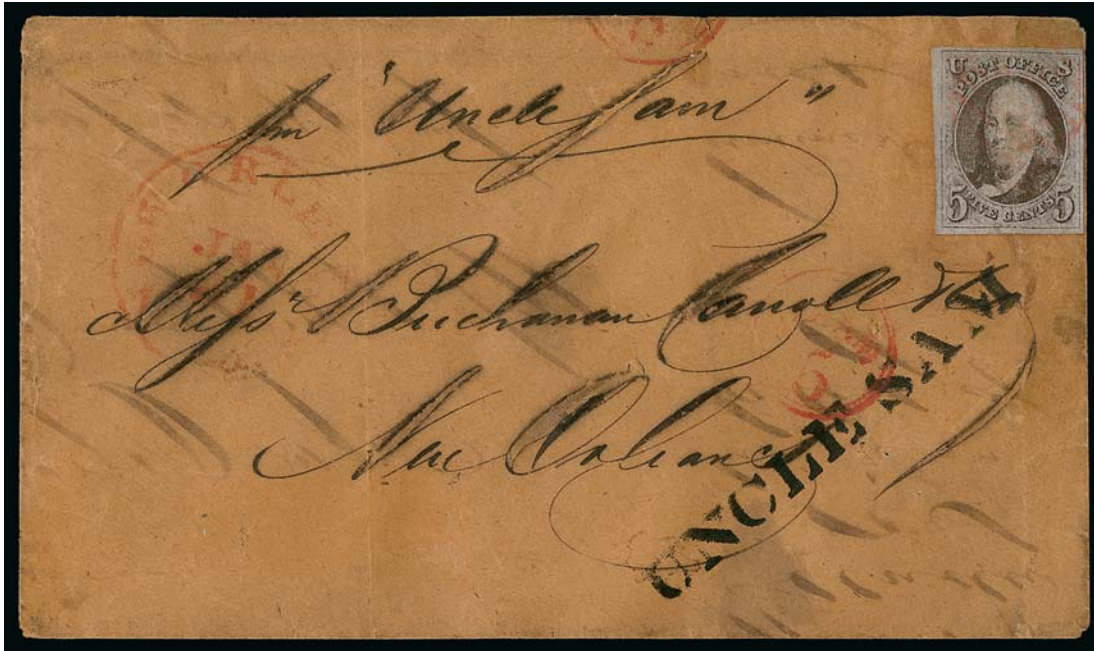 U S
POST OFFICE
5 FIVE CENTS 5
pr "Uncle Sam"
ORLE
JAN
Messrs Buchanan Carroll & Co
New Orleans
5
UNCLE SAM